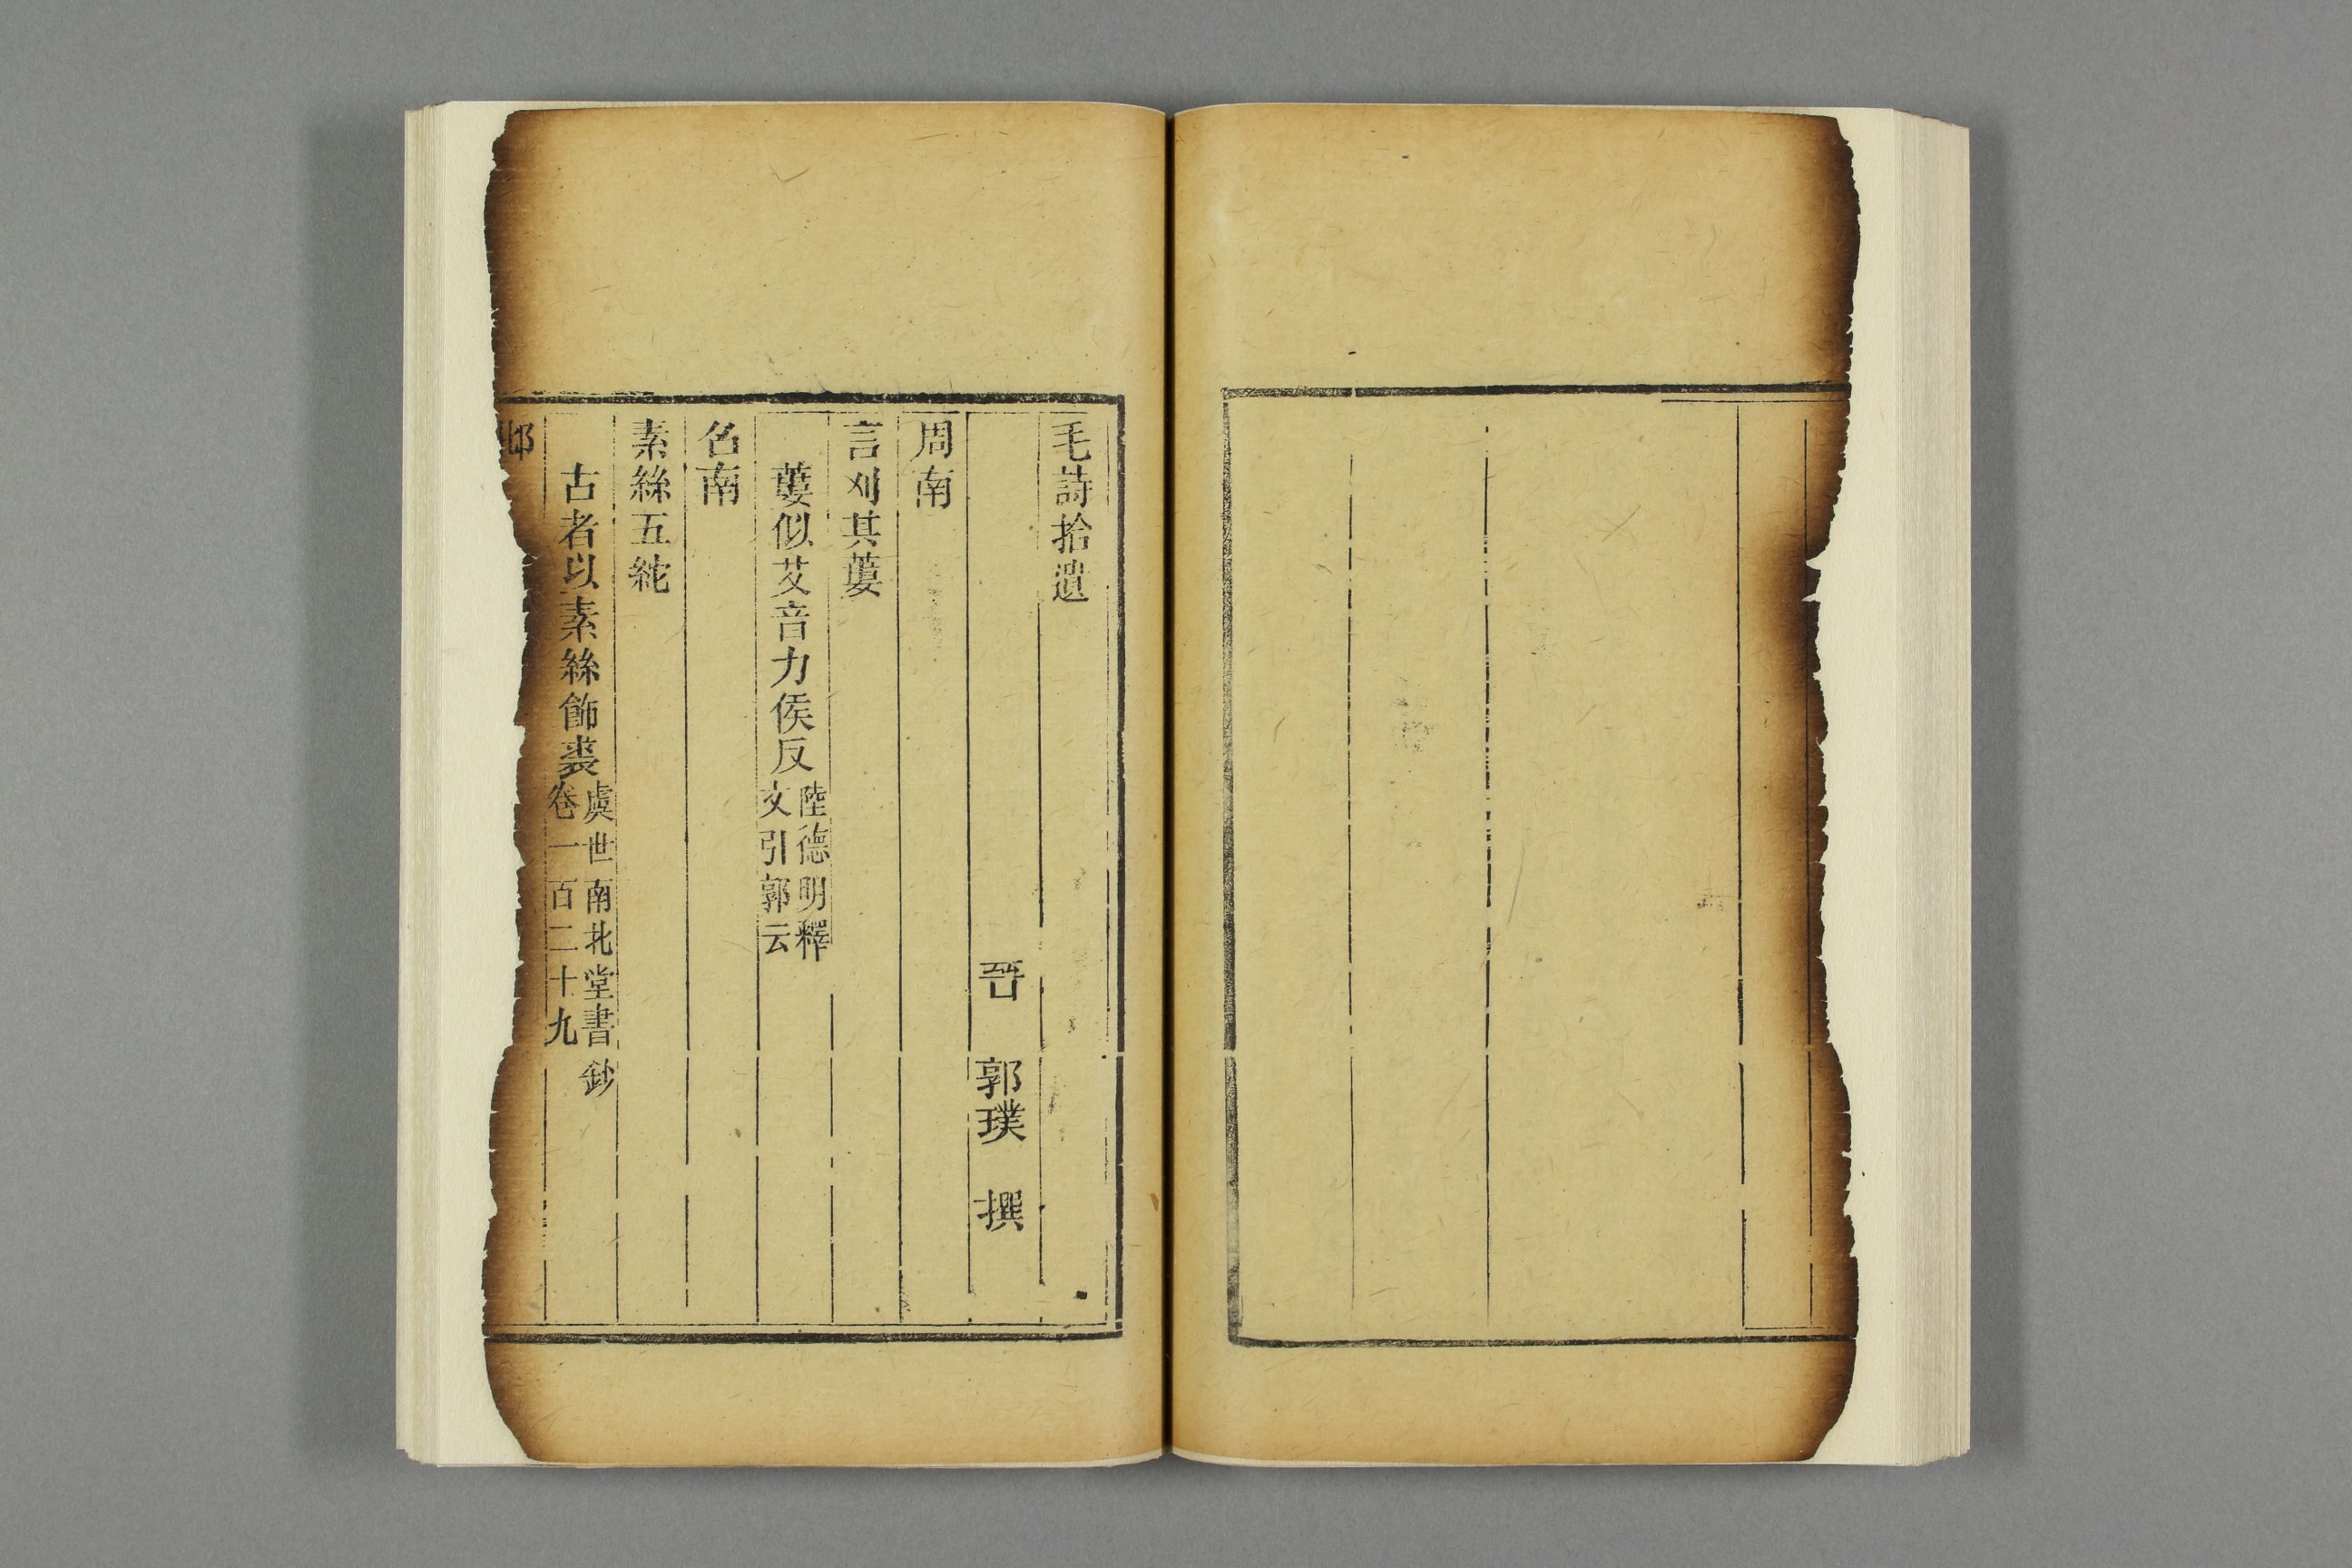 毛詩拾遺
晉 郭璞 撰
周南
言刈其蔞
蔞似艾音力侯反陸德明釋文引郭云
召南
素絲五紽
古者以素絲飾裘虞世南北堂書鈔卷一百二十九
邶